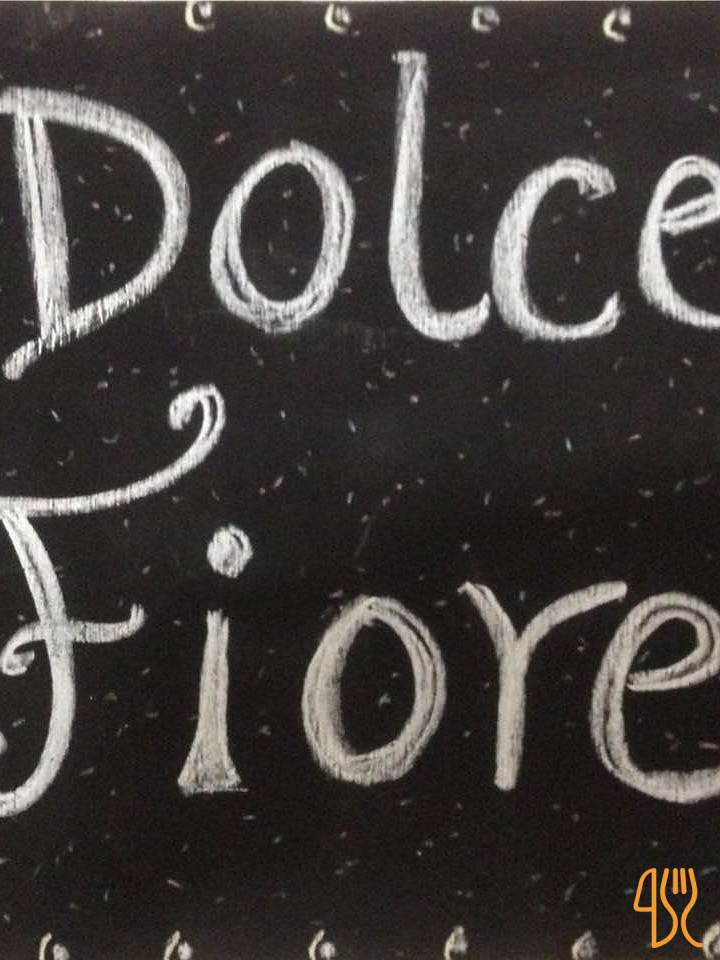 Dolce
Fiore